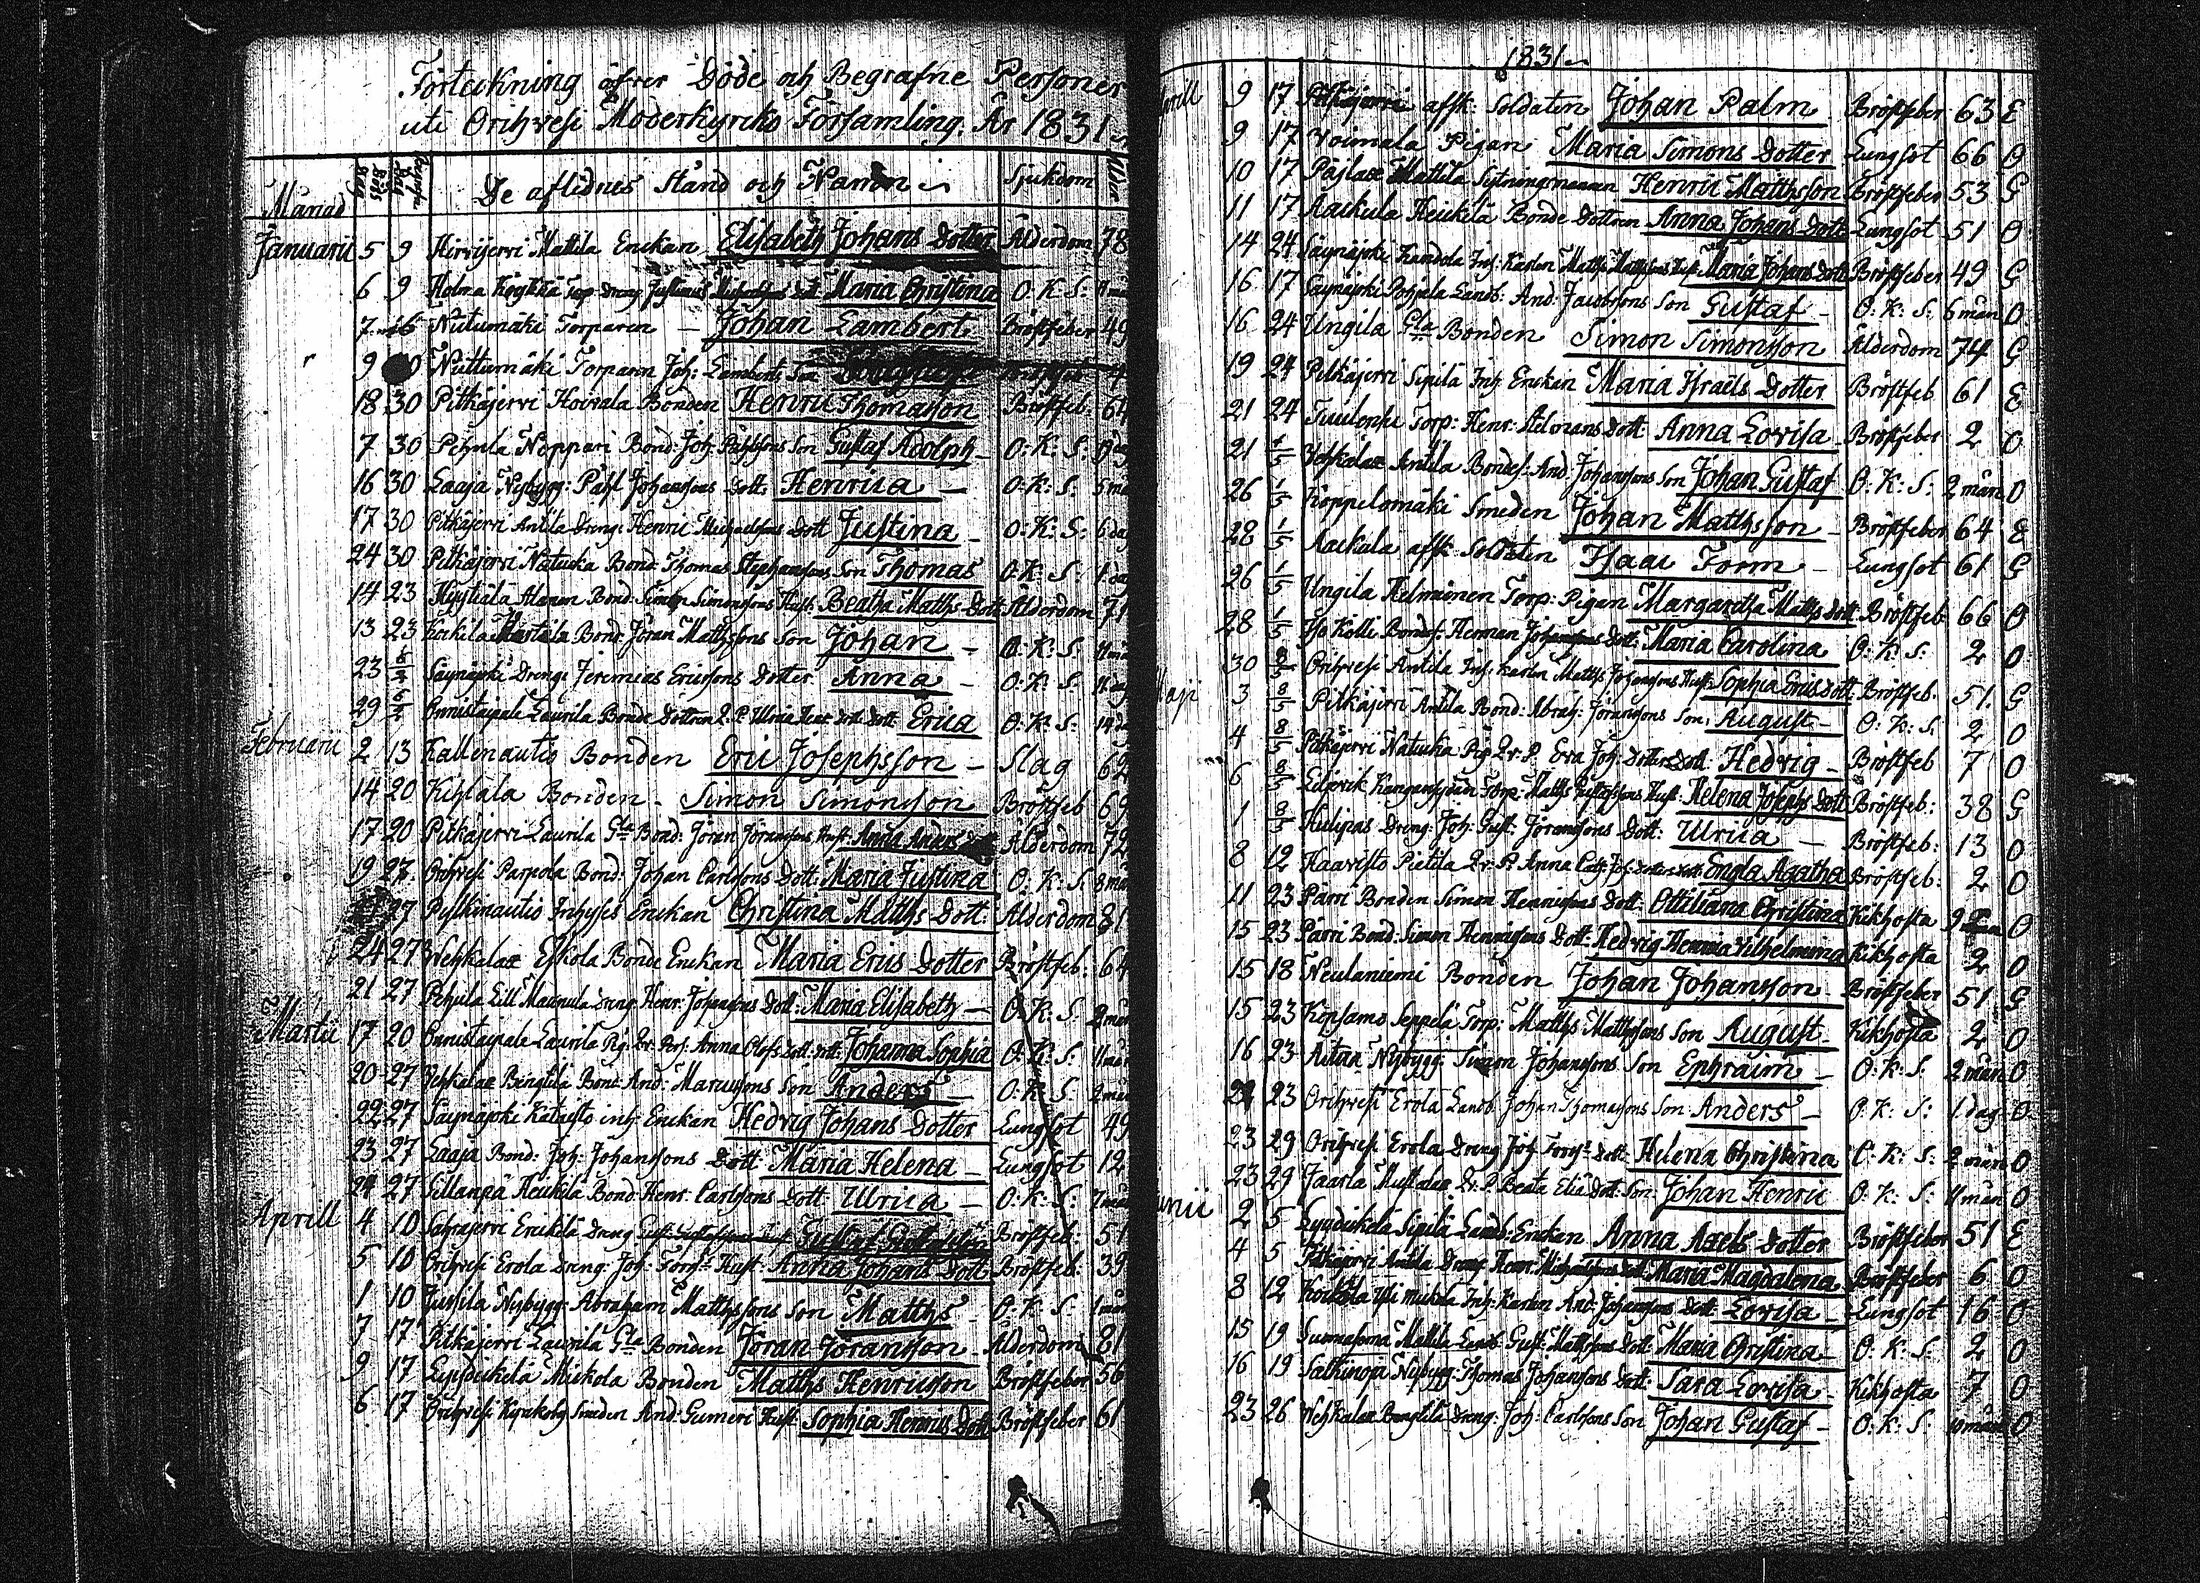 Förteckning öfver Döde och Begrafne Personer
uti Orihvesi Moderkyrko Församling. År 1831
Månad De aflidnes Stånd och Namn Sjukdom Ålder
Januarii 5 9 Hirvijervi Mattila Enckan Elisabeth Johans Dotter Ålderdom 78
6 9 Holma Maria Christina O. K. S.
7 16 Niitumäki Torparen Johan Lambert Bröstfeber 49
9 Niittumäki Torparen Joh: Lamberts Son
18 30 Pitkäjervi Hoivala Bonden Henric Thomasson Bröstfeb. 64
7 30 Pehula Noppari Bond: Joh: Påhlssons Son Gustaf Adolph O. K. S.
16 30 Laaja Nybygg: Påhl Johanssons Dott: Henrica O. K. S.
17 30 Pitkäjervi Antila Dreng: Henric Michaelssons Dott Justina O. K. S. 6 dag
24 30 Pitkäjervi Natucka Bond: Thomas Stephanssons Son Thomas O. K. S. 1 dag
14 23 Bond: Simon Simonssons Hust: Beatha Matths Dott: Ålderdom 71
13 23 Bond: Jöran Matthssons Son Johan O. K. S.
23 6/2 Säynäjoki Dreng: Jeremias Ericssons Dotter Anna O. K. S.
29 6/2 Onnistaipale Laurila Bonde Dottren Erica O. K. S.
Februarii 2 13 Kallenautio Bonden Eric Josephsson Slag 62
14 20 Kihlala Bonden Simon Simonsson Bröstfeb 69
17 20 Pitkäjervi Laurila Gla Bond: Jöran Jöranssons Hust: Anna Anders Ålderdom 72
19 27 Orihvesi Parpola Bond: Johan Carlssons Dott: Maria Justina O. K. S. 8 mån
27 Pylkinautio Inhyses Enckan Christina Matths Dott: Ålderdom 81
24 27 Vehkalax Eskola Bonde Enckan Maria Erics Dotter Bröstfeb. 64
21 27 Pehula Lill Maunula Dreng: Henr: Johanssons Dott: Maria Elisabeth O. K. S. 2 mån
Martii 17 20 Onnistaipale Laurila Pig: Anna Olofs Dott: Johanna Sophia O. K. S. 11 mån
20 27 Vehkalax Bengtilä Bond: And: Marcussons Son Anders O. K. S. 2 mån
22 27 Säynäjoki Katisto inh: Enckan Hedvig Johans Dotter Lungsot 49
23 27 Laaja Bond: Joh: Johanssons Dott: Maria Helena Lungsot 12
24 27 Sillanpä Heickilä Bond: Henr: Carlssons Dott: Ulrica O. K. S. 7 mån
Aprill 4 10 Sahrajervi Erickilä Dreng Gustaf Gustafsson Bröstfeb: 51
5 10 Orihvesi Erola Dreng: Joh: Forss Hust Anna Johans Dott: Bröstfeb. 39
1 10 Nybygg: Abraham Matthssons Son Matths O. K. S.
7 17 Pitkäjervi Laurila Gla Bonden Jöran Jöransson Ålderdom 81
9 17 Lyydickelä Mickola Bonden Matths Henricsson Bröstfeber 56
6 17 Orihvesi Kyrckoby Smeden And: Gumeri Hust: Sophia Henrics Dott Bröstfeber 61
1831
Aprill 9 17 Pitkäjervi afsk: Soldaten Johan Palm Bröstfeber 63 E
9 17 Voimala Pigan Maria Simons Dotter Lungsot 66 O
10 17 Päjlax Mattila Sytningsmannen Henric Matthsson Bröstfeber 53 G
11 17 Aackula Heickilä Bonde Dottren Anna Johans Dott Lungsot 51 O
14 24 Säynäjoki Inh: Karlen Matths Matthssons Hust: Maria Johans Dott: Bröstfeber 49 G
16 17 Säynäjoki Pohjala Landb: And: Jacobssons Son Gustaf O. K. S. 6 mån O
16 24 Ungila Gla Bonden Simon Simonsson Ålderdom 74 G
19 24 Pitkäjervi Sipilä Inh: Enckan Maria Israels Dotter Bröstfeb 61 E
21 24 Torp: Henr: Dott: Anna Lovisa Bröstfeber 2 O
21 1/5 Antila Bondes: And: Johanssons Son Johan Gustaf O. K. S. 2 mån O
26 1/5 Koppelomäki Smeden Johan Matthsson Bröstfeber 64 E
28 1/5 Aackala afsk: Soldaten Isaac Form Lungsot 61 G
26 1/5 Ungila Helminen Torp: Pigan Margaretha Matths Dott Bröstfeb 66 O
28 1/5 Iso Kolli Bondes: Herman Johanssons Dott: Maria Carolina O. K. S. 2 O
30 8/5 Orihvesi Antila Inh: Karlen Matths Johanssons Hust: Sophia Erics Dott: Bröstfeb. 51 G
Maji 3 8/5 Pitkäjervi Antila Bond: Abrah: Jöranssons Son August O. K. S. 2 O
4 8/5 Pitkäjervi Natucka Pig: Eva Joh: Dotters Dott: Hedvig Bröstfeb 7 O
6 8/5 Torp: Matths Gustafssons Hust: Helena Josephs Dott: Bröstfeb: 38 G
1 8/5 Hulipas Dreng: Joh: Gust: Jöranssons Dott: Ulrica Bröstfeb: 13 O
8 12 Haavisto Pietilä Anna Engla Agatha Bröstfeb: 2 O
11 23 Parri Bonden Simon Henricssons Dott: Ottiliana Christina Kikhosta 9 O
15 23 Parri Bond: Simon Henricssons Dott: Hedvig Henrica Vilhelmina Kikhosta 2 O
15 18 Neulaniemi Bonden Johan Johansson Bröstfeber 51 G
15 23 Kopsamo Seppelä Torp: Matths Matthssons Son August Kikhosta 2 O
16 23 Nybygg: Simon Johanssons Son Ephraim O. K. S. 2 mån O
23 Orihvesi Erola Landb: Johan Thomassons Son Anders O. K. S. 1 dag O
23 29 Orihvesi Erola Dreng Joh: Forss Dott: Helena Christina O. K. S. 2 mån O
23 29 Beata Elia Dott: Son: Johan Henric O. K. S. 11 mån O
Junii 2 5 Lyydickelä Sipilä Landb: Enckan Anna Axels Dotter Bröstfeber 51 E
4 5 Pitkäjervi Antila Dreng Henr: Maria Magdalena Bröstfeber 6 O
8 12 Mickola Inh: Karlen And: Johanssons Dott: Lovisa Lungsot 16 O
15 19 Mattila Landb: Gust: Matthssons Dott: Maria Christina O. K. S. 2 O
16 19 Nybygg: Thomas Johanssons Dott: Sara Lovisa Kikhosta 7 O
23 26 Vehkalax Bengtilä Dreng: Joh: Carlssons Son Johan Gustaf O. K. S. O